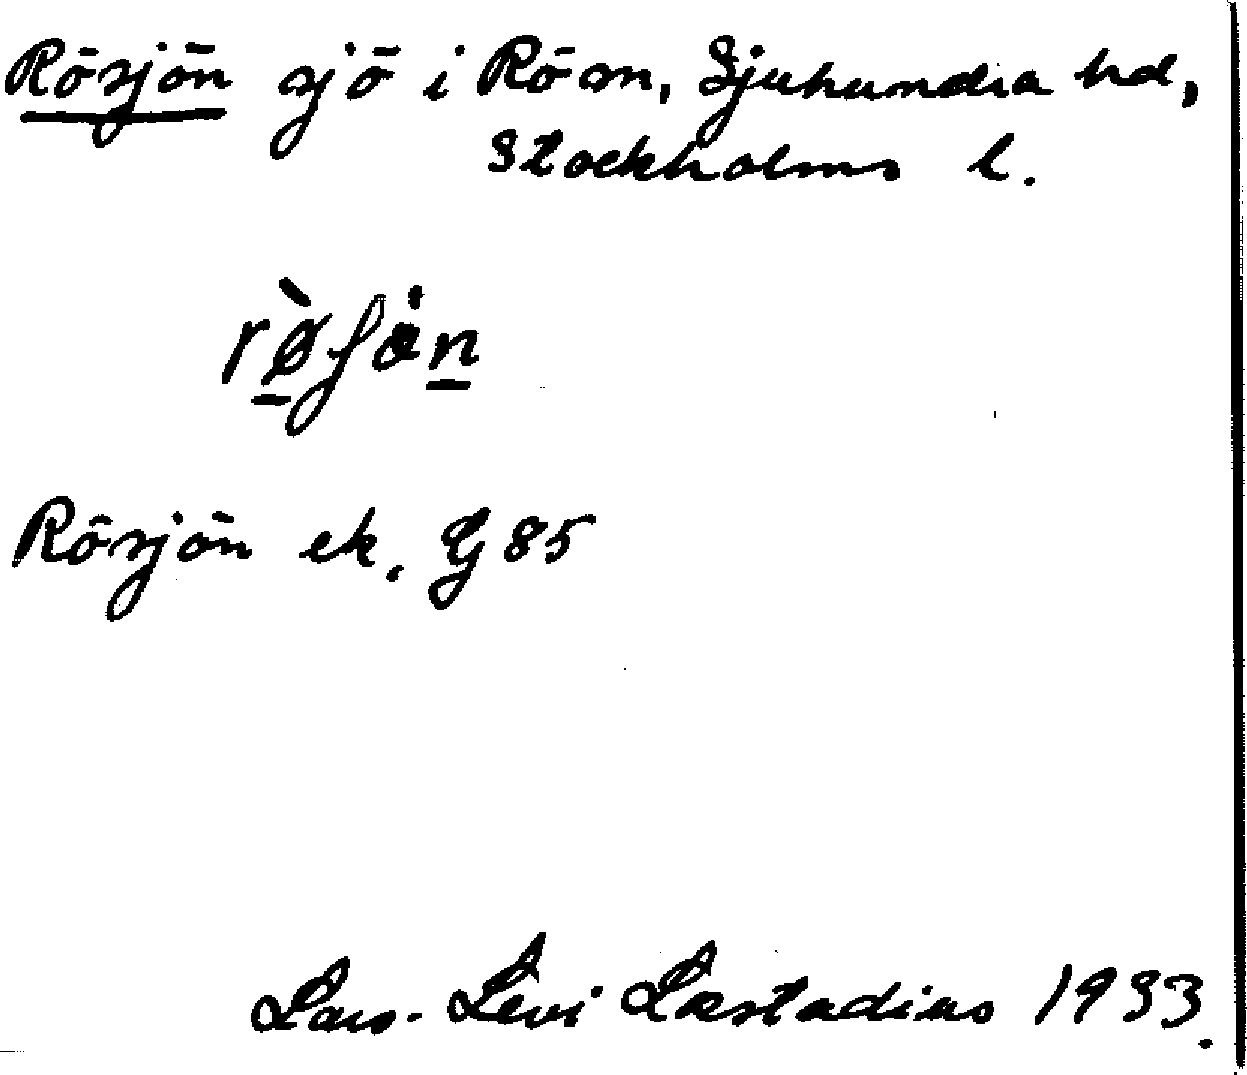 Rösjön sjö i Rö sn, Sjuhundra hd,
Stockholms l.
Rösjön ek. G 85
Lars-Levi Læstadius 1933.